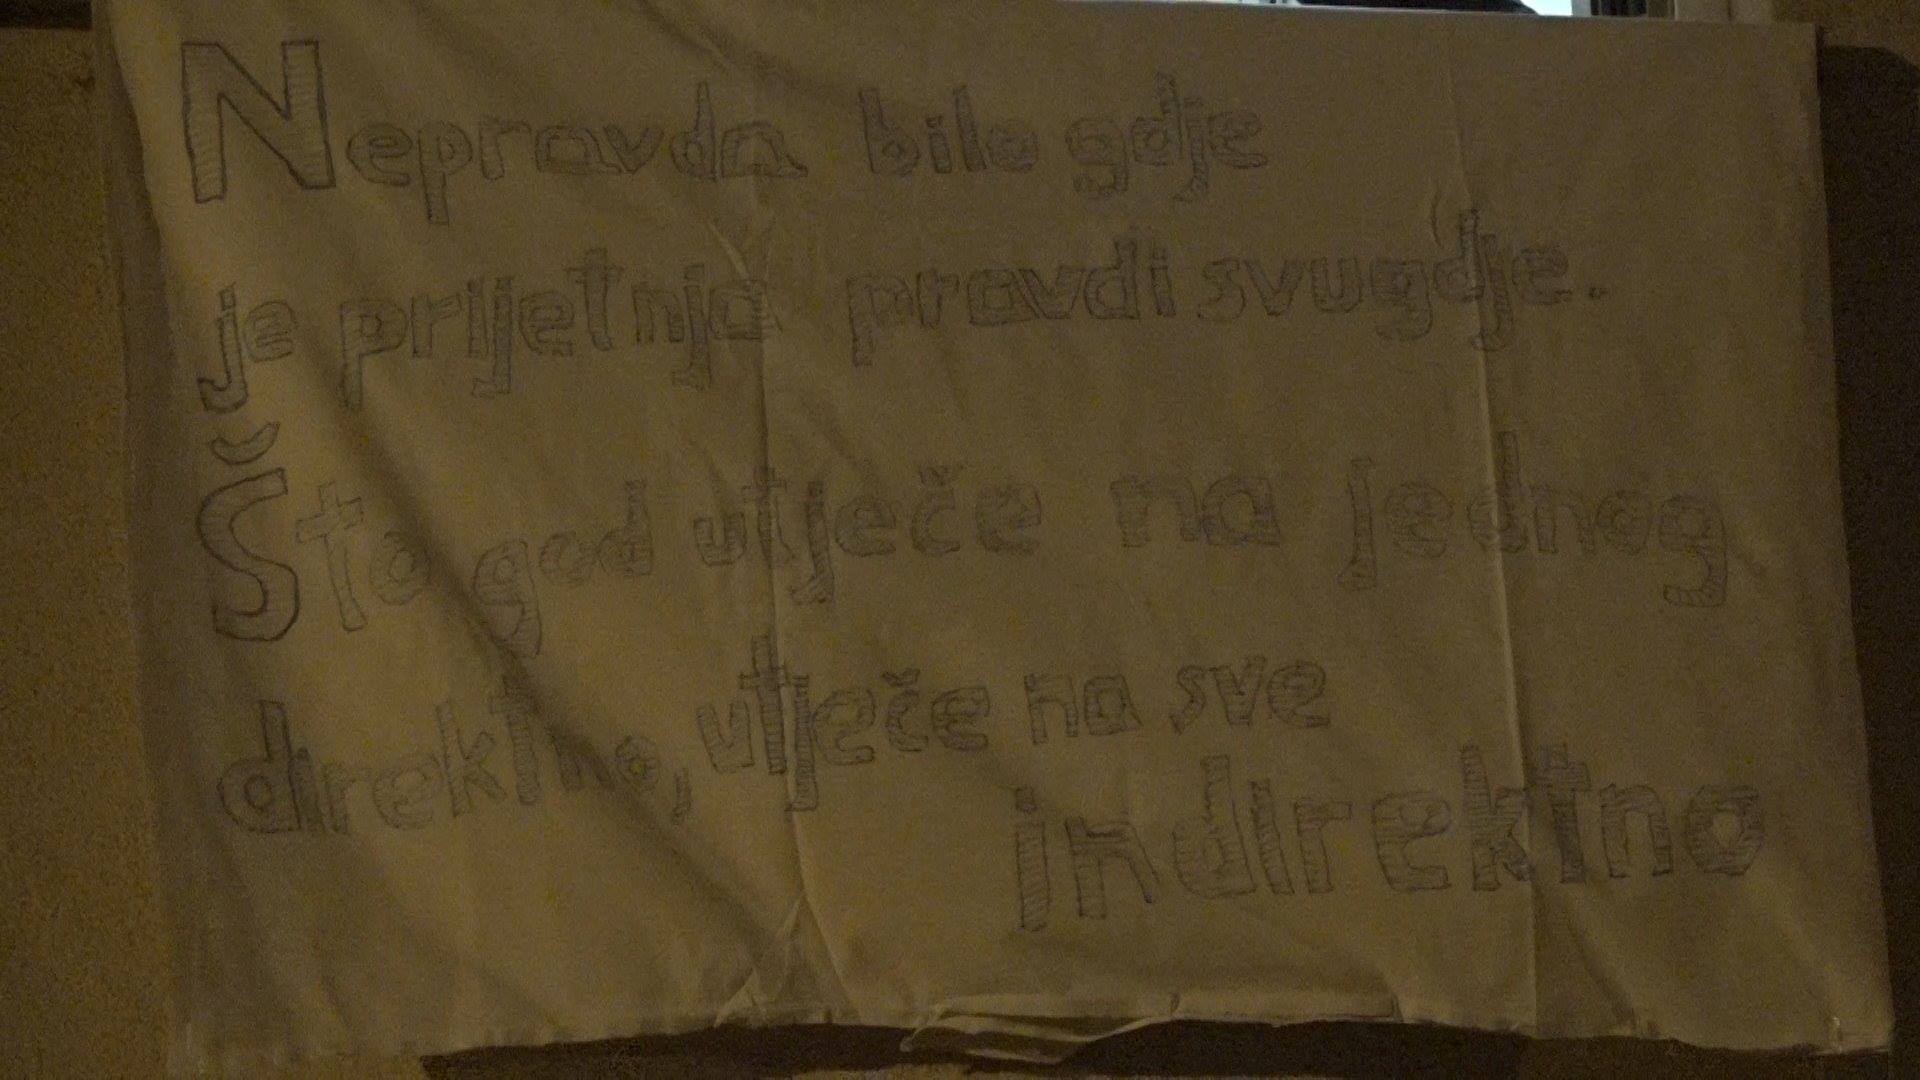 Nepravda bilo gdje
je prijetnja pravdi svugdje.
Što god utječe na jednog
direktno, utječe na sve
indirektno